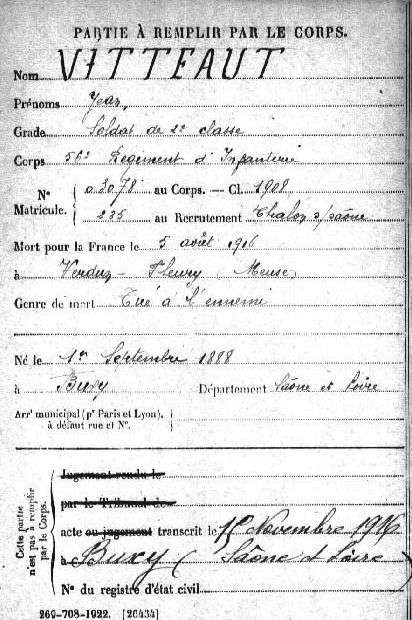 PARTIE À REMPLIR PAR LE CORPS.
Nom VITTEAUT
Prénoms Jean
Grade Soldat de 2e classe
Corps 56e Regiment d'Infanterie
N° Matricule. 03078 au Corps. — Cl. 1908
225 au Recrutement Chalon s/saône
Mort pour la France le 5 août 1916
à Verdun - Fleury (Meuse)
Genre de mort Tué à l'ennemi
Né le 1er Septembre 1888
à Buxy Département Saône et Loire
Arrt municipal (pr Paris et Lyon),
à défaut rue et N°.
Cette partie n'est pas à remplir par le Corps.
Jugement rendu le
par le Tribunal de
acte ou jugement transcrit le Novembre 1916
à Buxy (Saône et Loire)
N° du registre d'état civil
269-708-1922. [26434]